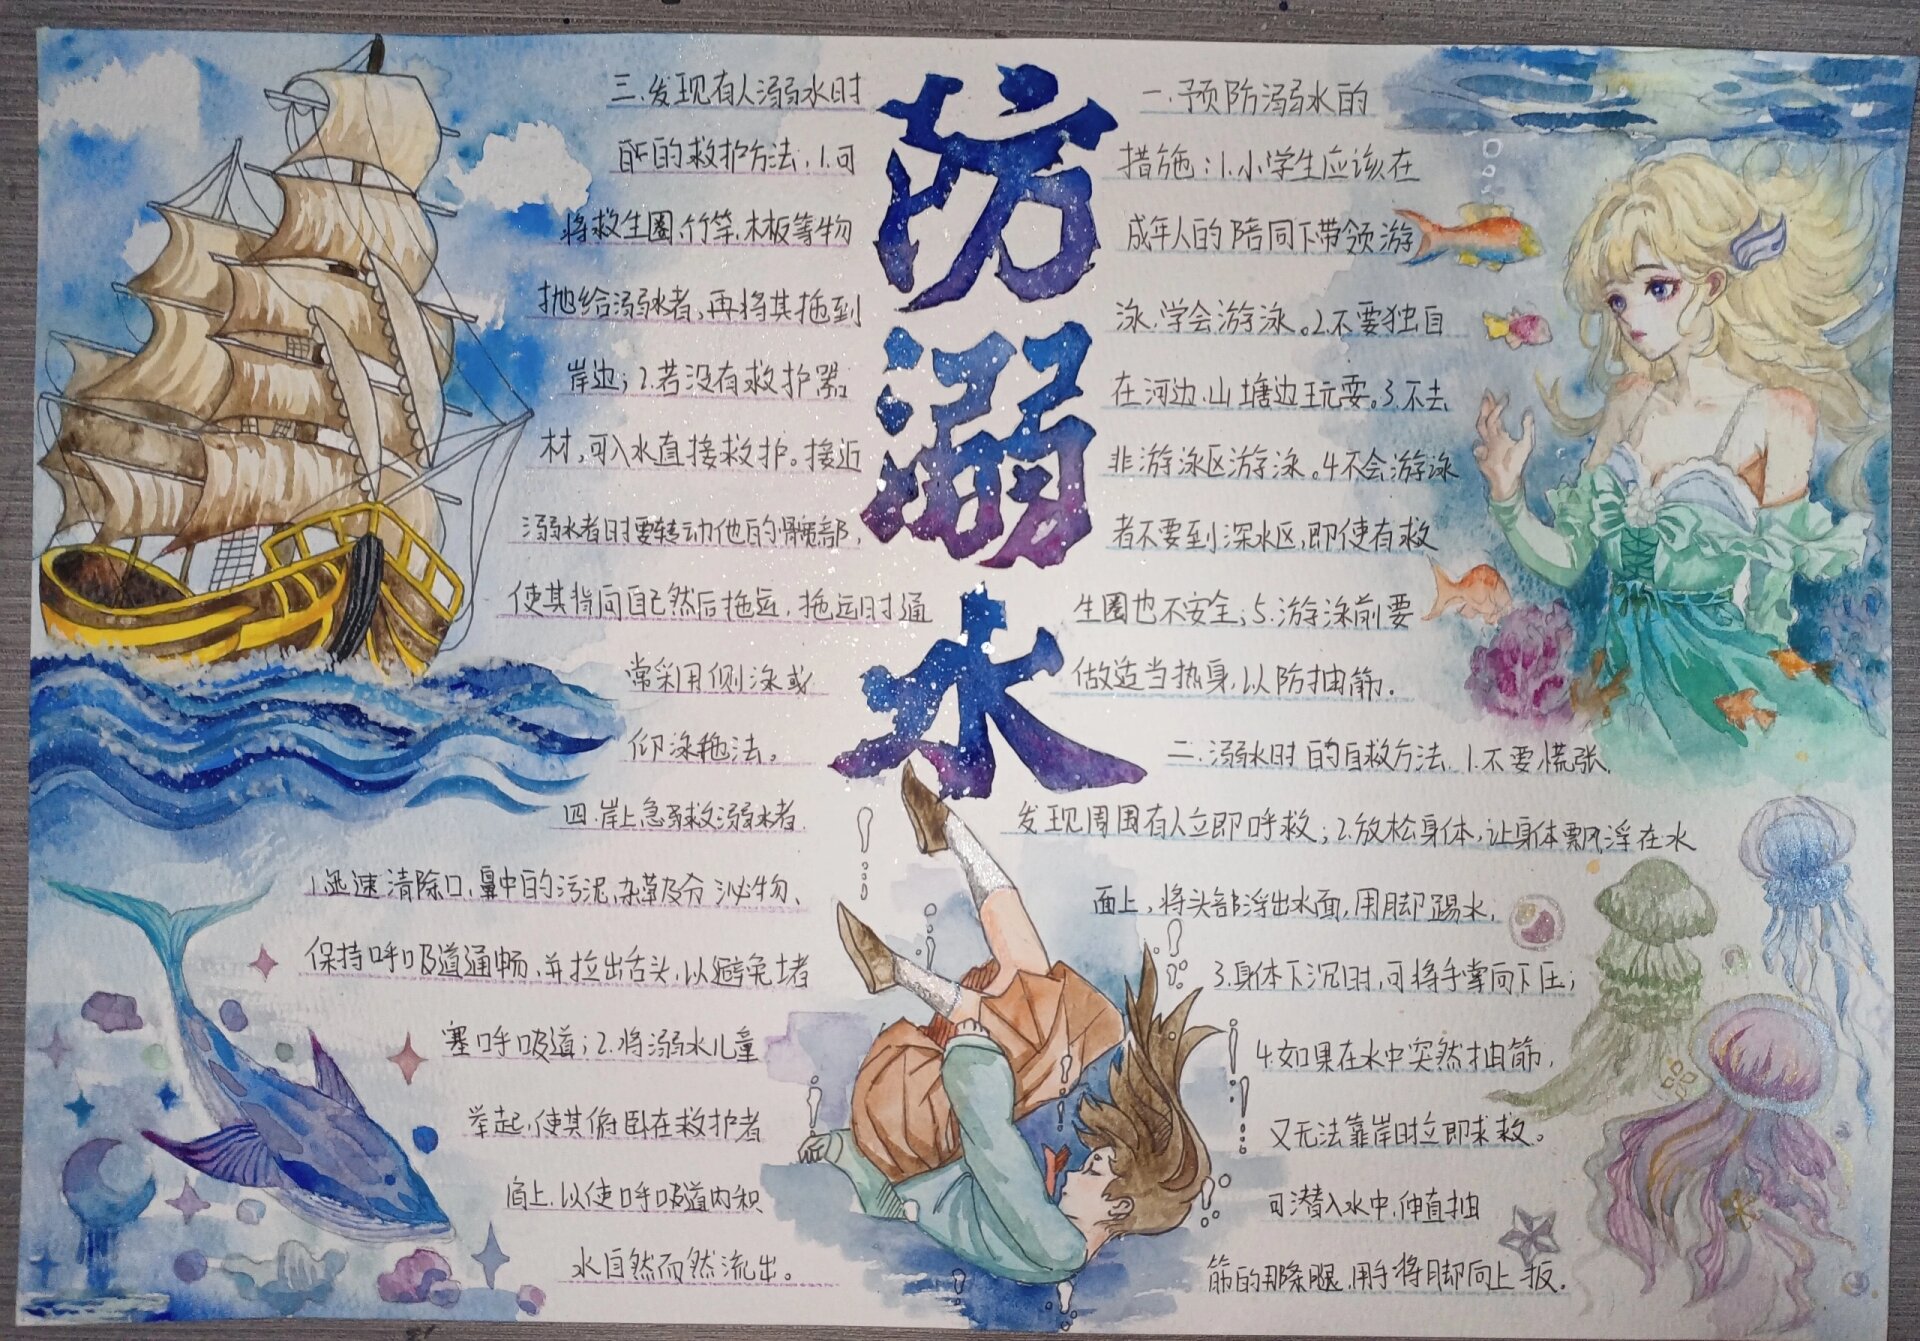 防溺水
一.预防溺水的
措施:1.小学生应该在
成年人的陪同下带领游
泳.学会游泳。2.不要独自
在河边.山塘边玩耍。3.不去
非游泳区游泳。4.不会游泳
者不要到深水区,即使有救
生圈也不安全;5.游泳前要
做适当热身,以防抽筋.
二.溺水时的自救方法.1.不要慌张.
发现周围有人立即呼救;2.放松身体,让身体飘浮在水
面上,将头部浮出水面,用脚踢水.
3.身体下沉时,可将手掌向下压;
4.如果在水中突然抽筋.
又无法靠岸时立即求救。
可潜入水中,伸直抽
筋的那条腿,用手将脚向上扳.
三.发现有人溺水时
的救护方法:1.可
将救生圈.竹竿.木板等物
抛给溺水者,再将其拖到
岸边;2.若没有救护器
材,可入水直接救护。接近
溺水者时要转动他的髋部,
使其背向自己然后拖运.拖运时通
常采用侧泳或
仰泳拖法。
四.岸上急救溺水者
1.迅速清除口.鼻中的污泥,杂草及分泌物、
保持呼吸道通畅,并拉出舌头,以避免堵
塞呼吸道;2.将溺水儿童
举起,使其俯卧在救护者
肩上.以使呼吸道内积
水自然而然流出。